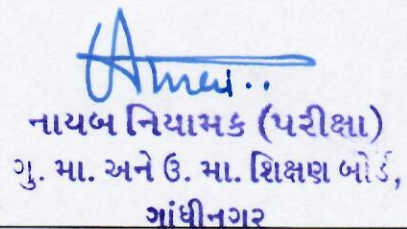 નાયબ નિયામક (પરીક્ષા)
ગુ. મા. અને ઉ. મા. શિક્ષણ બોર્ડ,
ગાંધીનગર